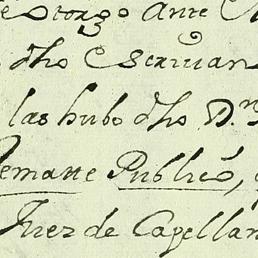 estorgo Ante
dho Escriuan
las hubo dho D.n
Remate Publico,
Juez de Capellan